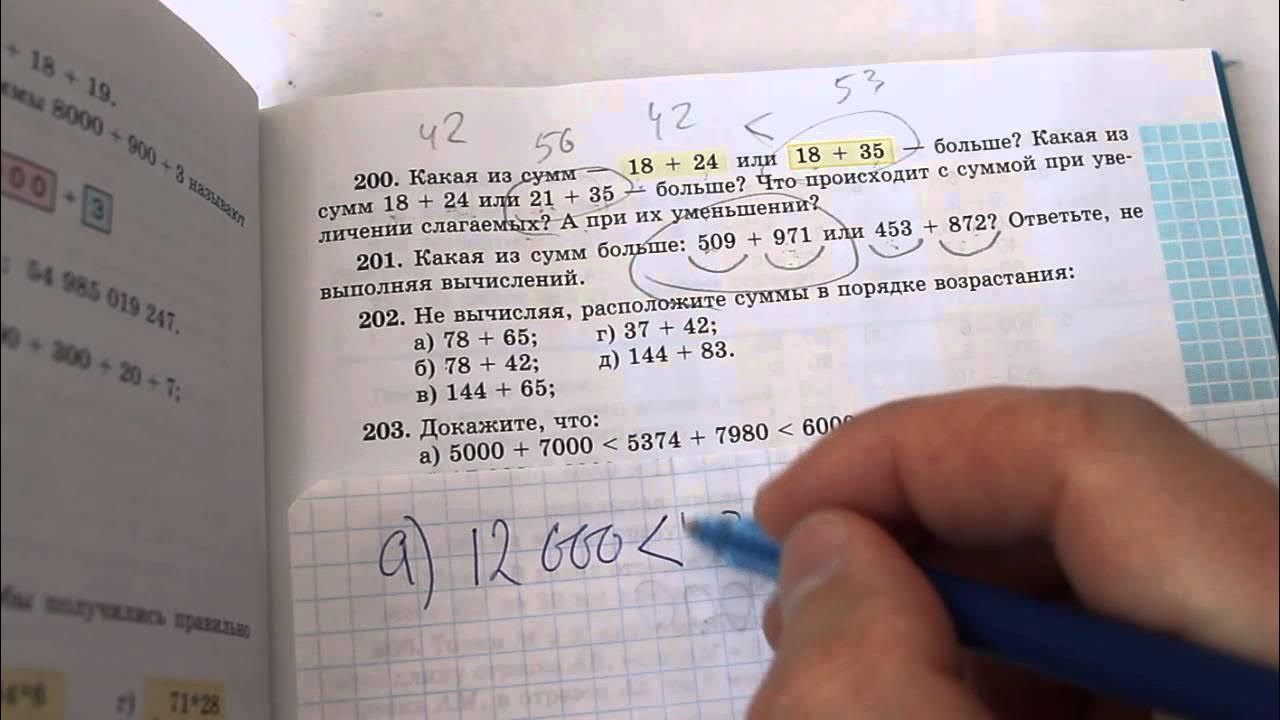 + 18 + 19.
8000 + 900 + 3 называют
+ 3
54 985 019 247.
+ 300 + 20 + 7;
получились правильно
г) 71*28
42 56 42 < 53
200. Какая из сумм — 18 + 24 или 18 + 35 — больше? Какая из
сумм 18 + 24 или 21 + 35 — больше? Что происходит с суммой при уве-
личении слагаемых? А при их уменьшении?
201. Какая из сумм больше: 509 + 971 или 453 + 872? Ответьте, не
выполняя вычислений.
202. Не вычисляя, расположите суммы в порядке возрастания:
а) 78 + 65; г) 37 + 42;
б) 78 + 42; д) 144 + 83.
в) 144 + 65;
203. Докажите, что:
а) 5000 + 7000 < 5374 + 7980 < 6000
а) 12 000 <